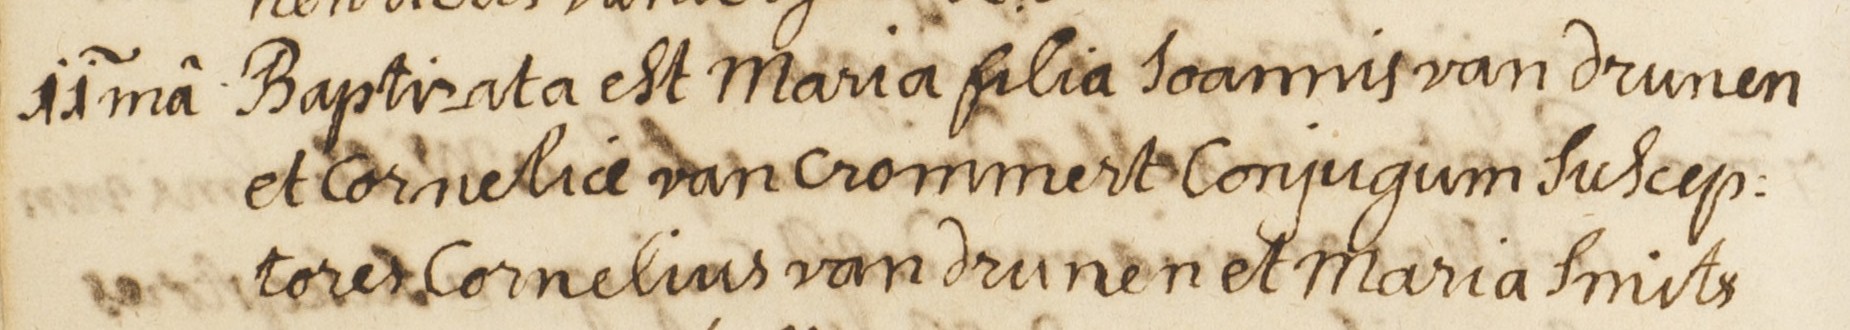 11mâ Baptizata est Maria filia Joannis van drunen
et Corneliæ van Crommert Conjugum Suscep:
tores Cornelius van drunen et Maria Smits